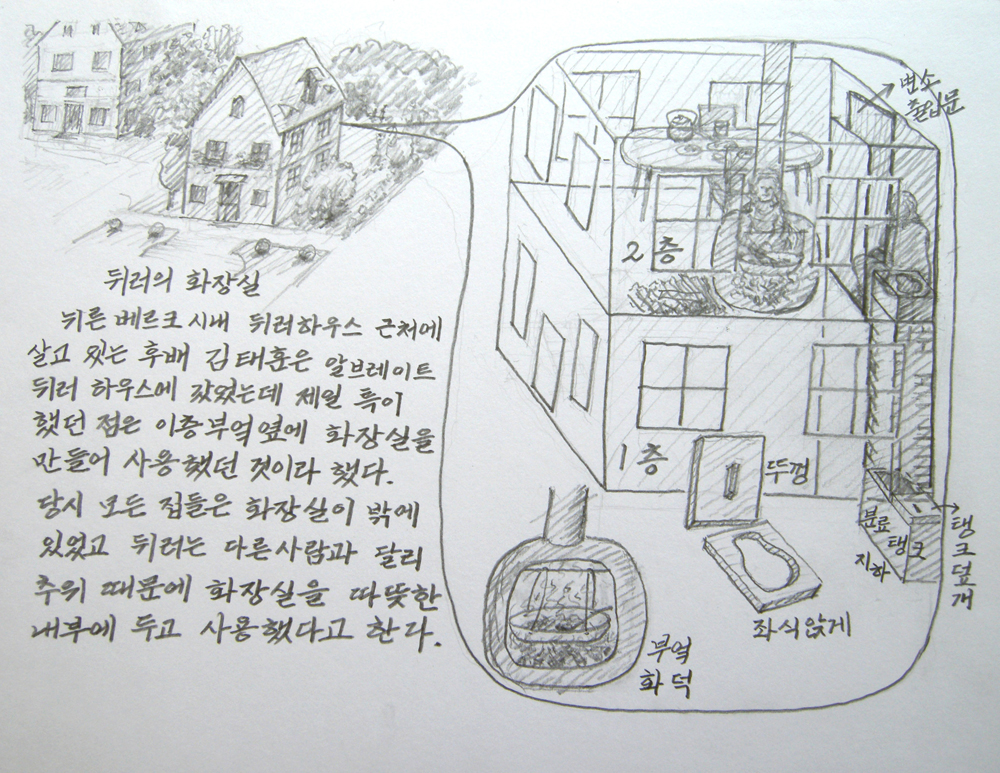 뒤러의 화장실
뉘른베르크 시내 뒤러하우스 근처에
살고 있는 후배 김태훈은 알브레이트
뒤러 하우스에 갔었는데 제일 특이
했던 점은 이층부엌옆에 화장실을
만들어 사용했던 것이라 했다.
당시 모든 집들은 화장실이 밖에
있었고 뒤러는 다른사람과 달리
추위 때문에 화장실을 따뜻한
내부에 두고 사용했다고 한다.
변소
출입문
2층
1층
뚜껑
분료
탱크
지하
탱크덮개
좌식앉게
부엌
화덕